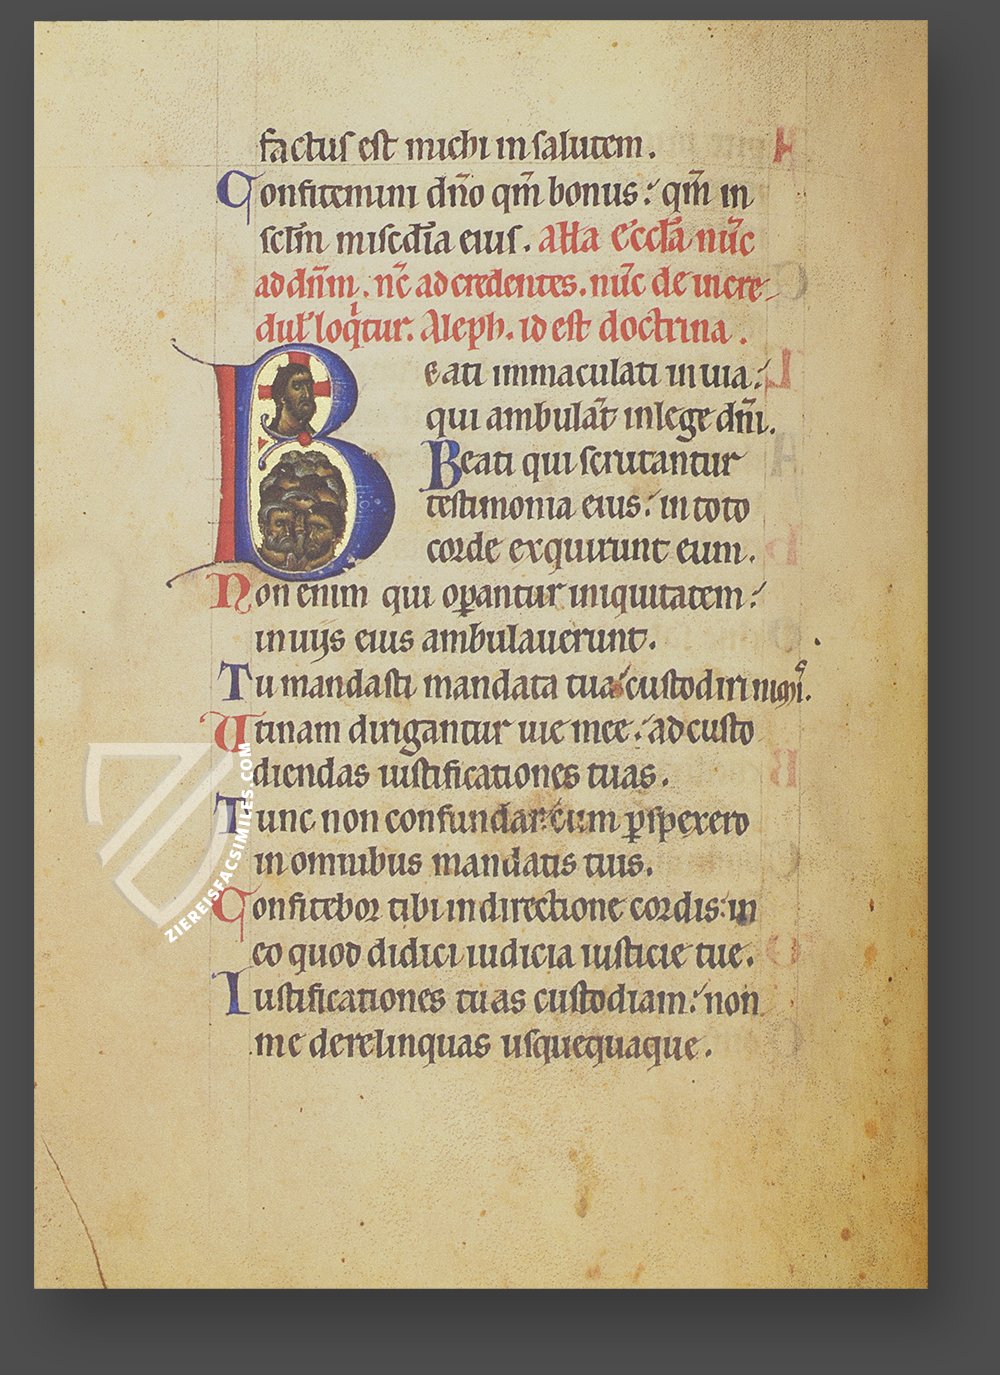 factus est michi in salutem.
Confitemini dño qm̄ bonus: qm̄ in
sclm̄ misc̄dia eius. Alla eccl̄a nūc
ad dn̄m. nc̄ ad credentes. nūc de incre-
dul' loqͥtur. Aleph. id est doctrina.
Beati immaculati in uia:
qui ambulāt in lege dñi.
Beati qui scrutantur
testimonia eius: in toto
corde exquirunt eum.
Non enim qui opantur iniquitatem:
in uijs eius ambulauerunt.
Tu mandasti mandata tua custodiri nimiͦ.
Utinam dirigantur uie mee: ad custo
diendas iustificationes tuas.
Tunc non confundar: cum ꝑspexero
in omnibus mandatis tuis.
Confitebor tibi in directione cordis: in
eo quod didici iudicia iusticie tue.
Iustificationes tuas custodiam: non
me derelinquas usquequaque.
ZIEREISFACSIMILES.COM